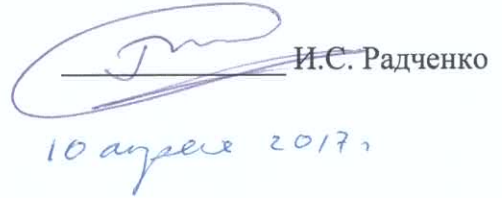 И.С. Радченко
10 апреля 2017 г